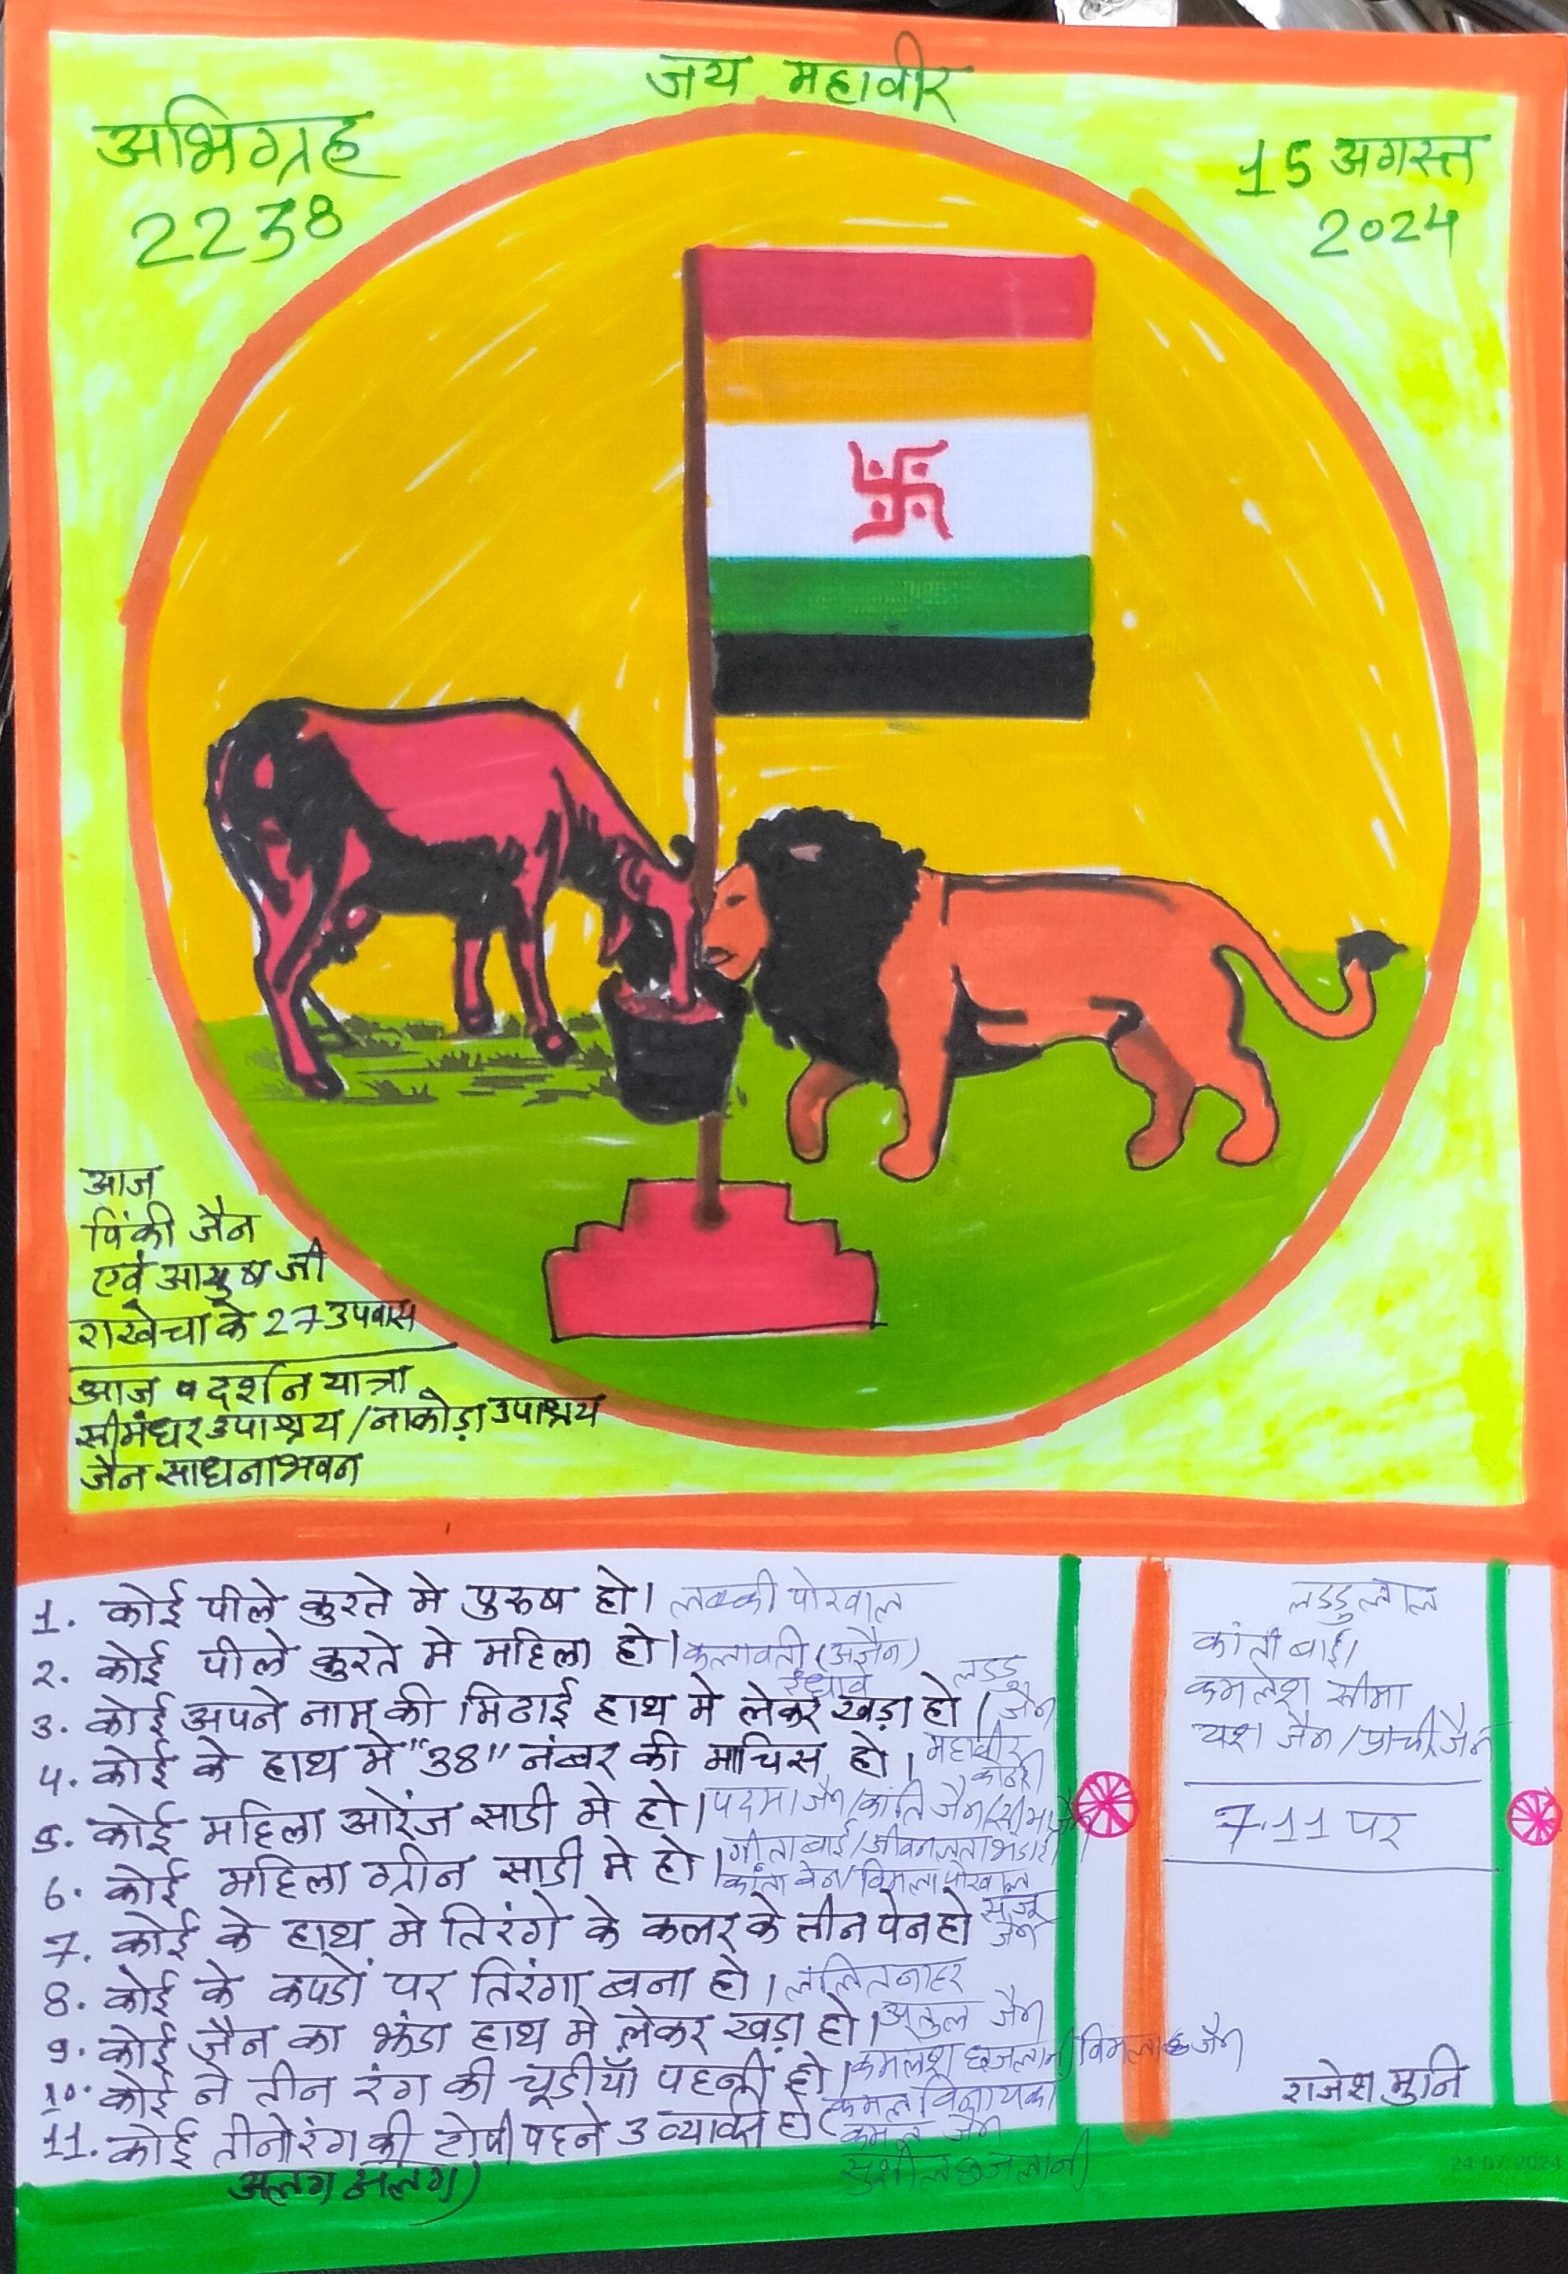 जय महावीर
अभिग्रह
2238
15 अगस्त
2024
आज
पिंकी जैन
एवं आयुष जी
राखेचा के 27 उपवास
आज दर्शन यात्रा
सीमंधर उपाश्रय / नाकोड़ा उपाश्रय
जैन साधना भवन
1. कोई पीले कुरते मे पुरुष हो। लक्की पोरवाल
2. कोई पीले कुरते मे महिला हो। कलावती (अजैन)
3. कोई अपने नाम की मिठाई हाथ मे लेकर खड़ा हो। लडडु जैन
4. कोई के हाथ मे "38" नंबर की माचिस हो। महावीर
5. कोई महिला ओरेंज साडी मे हो। पदमा जैन/कांति जैन/सीमा जैन
6. कोई महिला ग्रीन साडी मे हो। गीता बाई/जीवनलता भंडारी
कांता बेन/विमला पोरवाल
7. कोई के हाथ मे तिरंगे के कलर के तीन पेन हो संजू जैन
8. कोई के कपडों पर तिरंगा बना हो। ललित नाहर
9. कोई जैन का झंडा हाथ मे लेकर खड़ा हो। अतुल जैन
10. कोई ने तीन रंग की चूडीयाँ पहनी हो। कमलेश छजलानी/विमला जैन
11. कोई तीनो रंग की टोपी पहने 3 व्यक्ति हो (कमल विनायका
अलग अलग) कमल जैन
सुशील छजलानी
लडडुलाल
कांता बाई।
कमलेश सीमा
यश जैन/प्राची जैन
7.11 पर
राजेश मुनि
24.07.2024